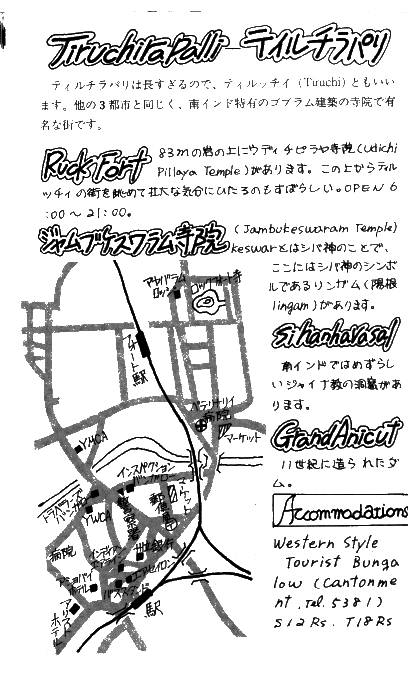 Tiruchirapalli ティルチラパリ
ティルチラパリは長すぎるので、ティルッチイ（Tiruchi）ともいい
ます。他の３都市と同じく、南インド特有のゴプラム建築の寺院で有
名な街です。
Rock Fort
83mの岩の上にウディチピラヤ寺院(Udichi
Pillaya Temple)があります。この上からティル
ッティの街を眺めて壮大な気分にひたるのもすばらしい。OPEN 6
:00〜21:00。
ジャムブケスワラム寺院
(Jambukeswaram Temple)
keswarとはシバ神のことで、
ここにはシバ神のシンボ
ルであるリンガム(陽根
lingam)があります。
Sihanhavasal
南インドではめずらし
いジャイナ教の洞窟があ
ります。
Grand Anicut
11世紀に造られたダ
ム。
Accommodations
Western Style
Tourist Bunga
low (Cantonme
nt, Tel. 5381)
S12Rs. T18Rs
ロックフォート寺
フォート駅
病院
マーケット
YMCA
インスペクション
バンガロー
トラベラーズ
バンガロー
YWCA
警察署
郵便局
病院
インディアン
州立銀行
アショカ
ホテル
バススタンド
アリストホテル
駅